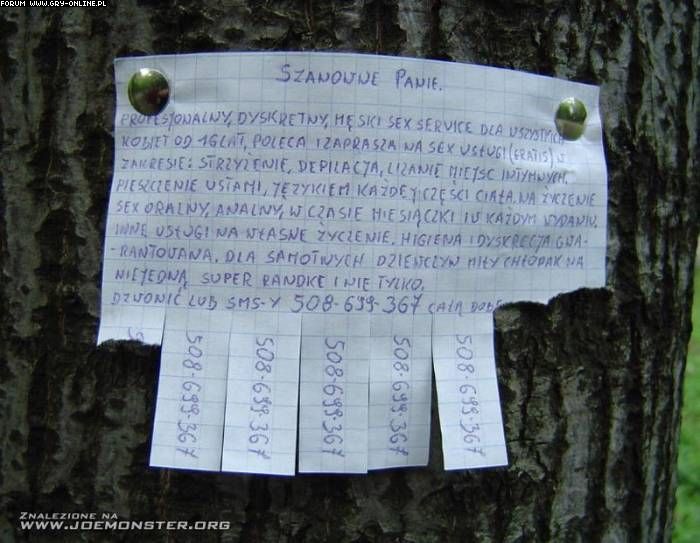 FORUM WWW.GRY-ONLINE.PL
SZANOWNE PANIE.
PROFESJONALNY, DYSKRETNY, MĘSKI SEX SERVICE DLA WSZYSTKICH
KOBIET OD 16 LAT, POLECA I ZAPRASZA NA SEX USŁUGI (GRATIS) W
ZAKRESIE: STRZYŻENIE, DEPILACJA, LIZANIE MIEJSC INTYMNYCH,
PIESZCZENIE USTAMI, JĘZYKIEM KAŻDEJ CZĘŚCI CIAŁA, NA ŻYCZENIE
SEX ORALNY, ANALNY, W CZASIE MIESIĄCZKI I W KAŻDYM WYDANIU,
INNE USŁUGI NA WŁASNE ŻYCZENIE. HIGIENA I DYSKRECJA GWA-
-RANTOWANA, DLA SAMOTNYCH DZIEWCZYN MIŁY CHŁOPAK NA
NIEJEDNĄ SUPER RANDKĘ I NIE TYLKO.
DZWONIĆ LUB SMS-Y 508-699-367 CAŁĄ
508-699-367
508-699-367
508-699-367
508-699-367
508-699-367
ZNALEZIONE NA
WWW.JOEMONSTER.ORG